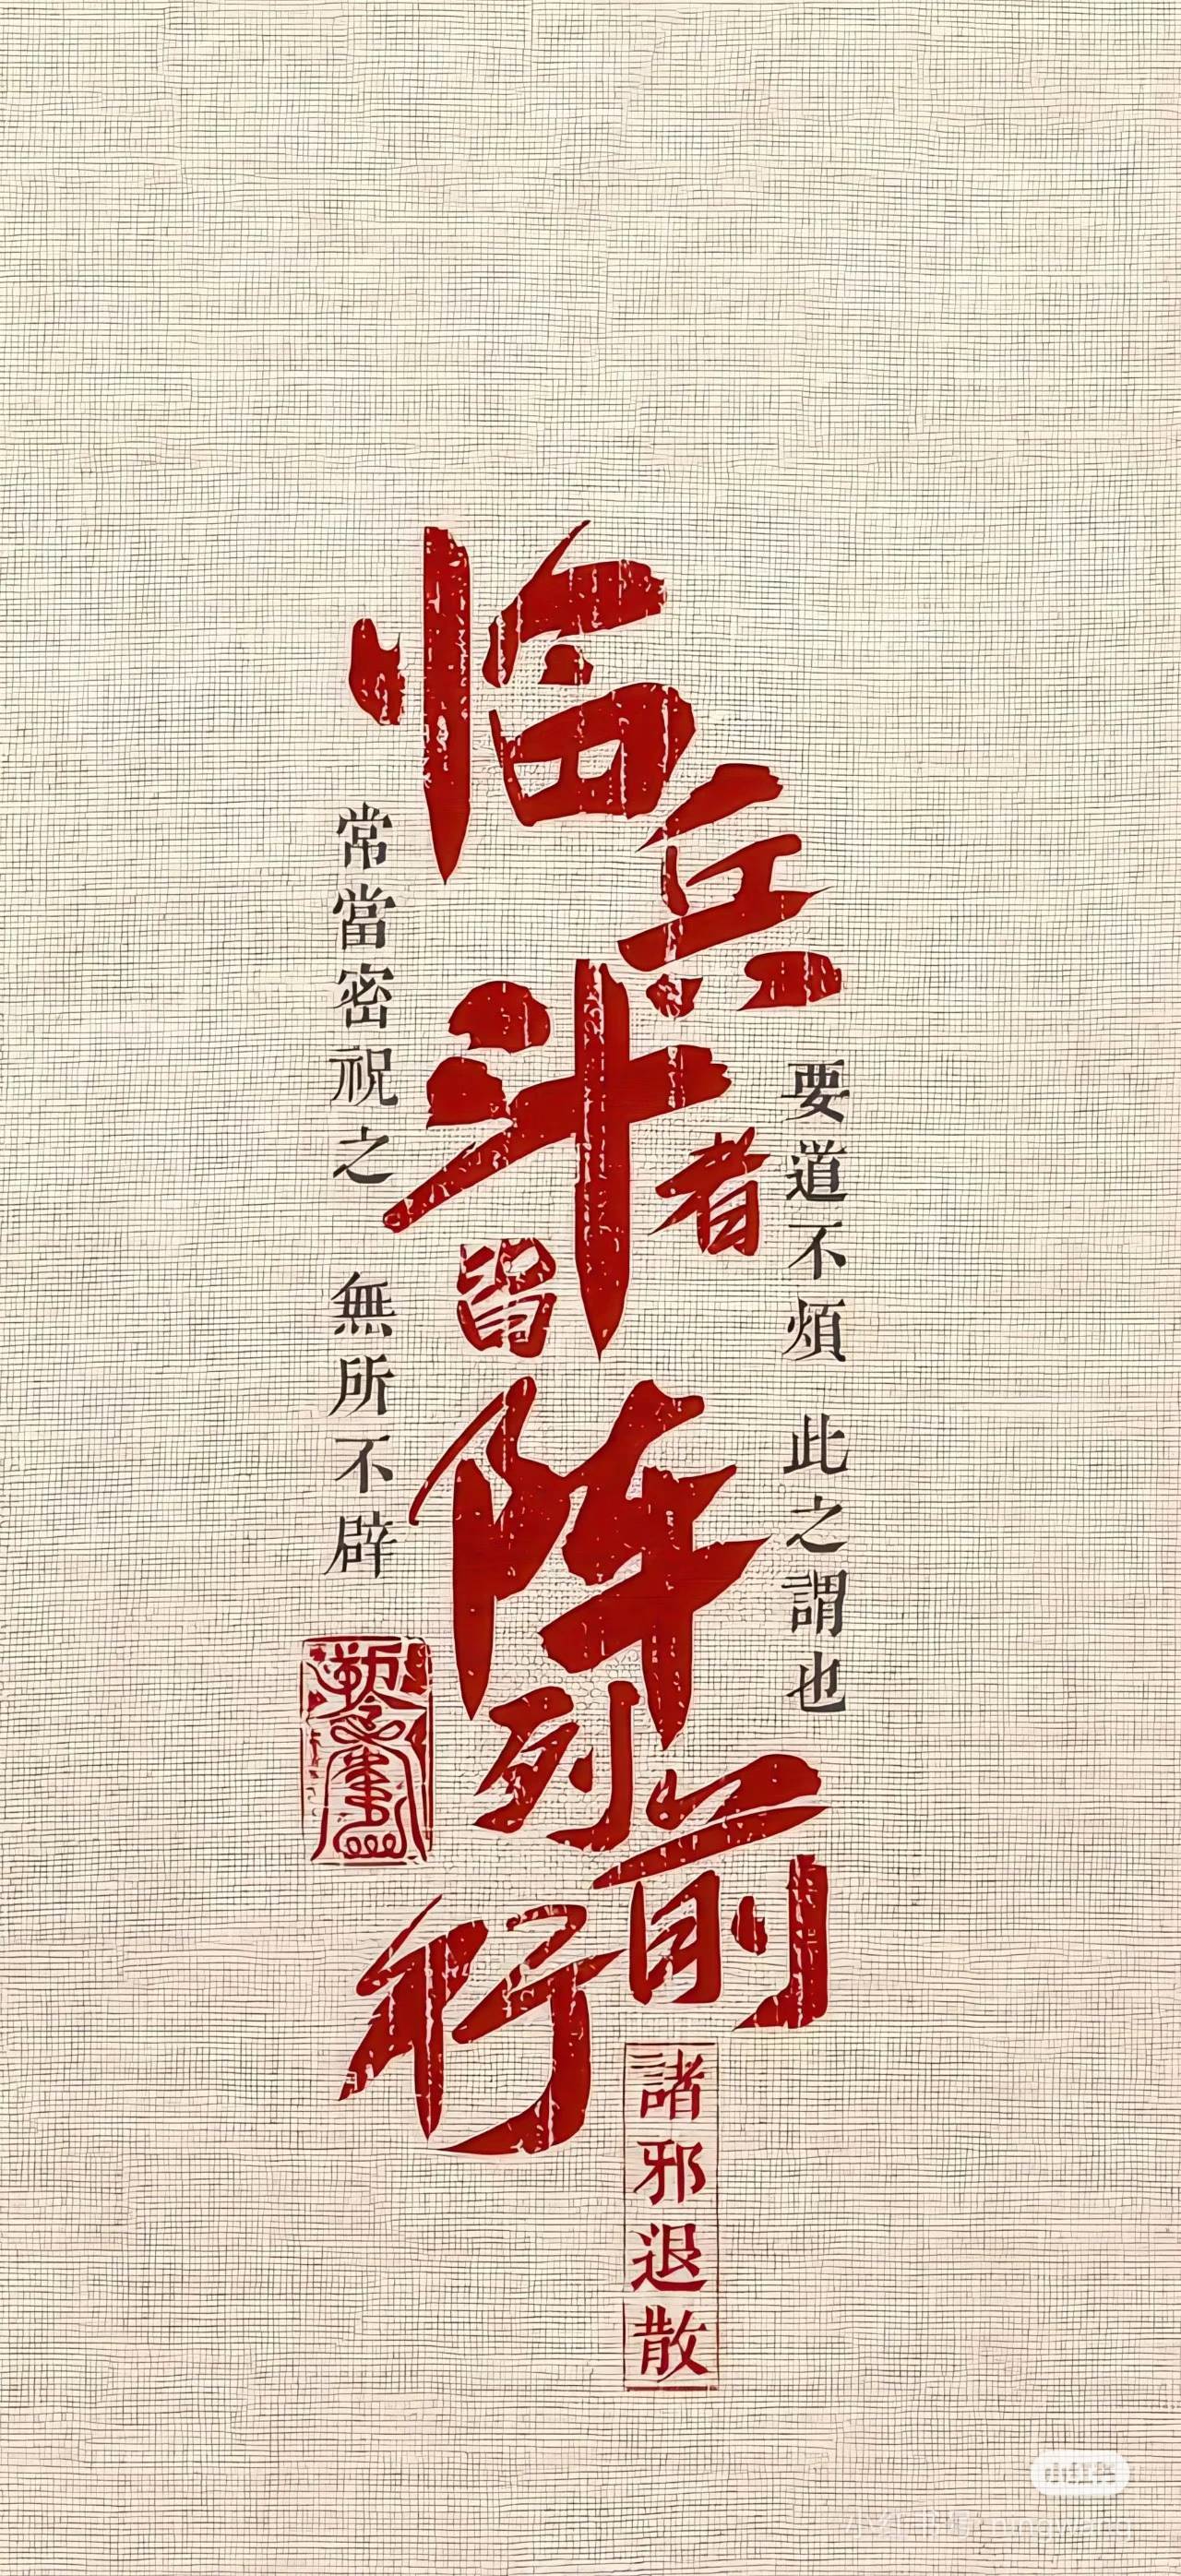 临兵斗者皆阵列前行
要道不煩 此之謂也
常當密祝之 無所不辟
諸邪退散
小红书